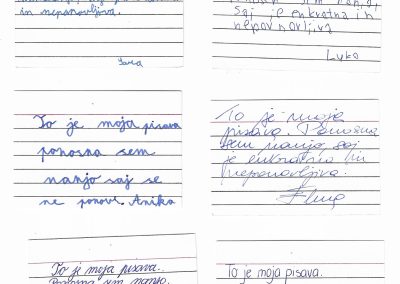 in neponovljiva.
Sara
saj je enkratna in
nepovnovljiva
Luka
To je moja pisava
ponosna sem
nanjo saj se
ne ponovi. Anika
To je moja
pisava. Ponosna
sem nanjo, saj
je enkratna in
neponovljiva.
To je moja pisava.
To je moja pisava.